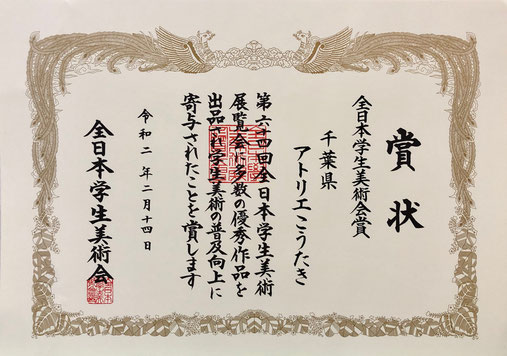 賞状
全日本学生美術会賞
千葉県
アトリエこうたき
第六四回全日本学生美術
展覧会に多数の優秀作品を
出品され学生美術の普及向上に
寄与されたことを賞します
令和二年二月十四日
全日本学生美術会